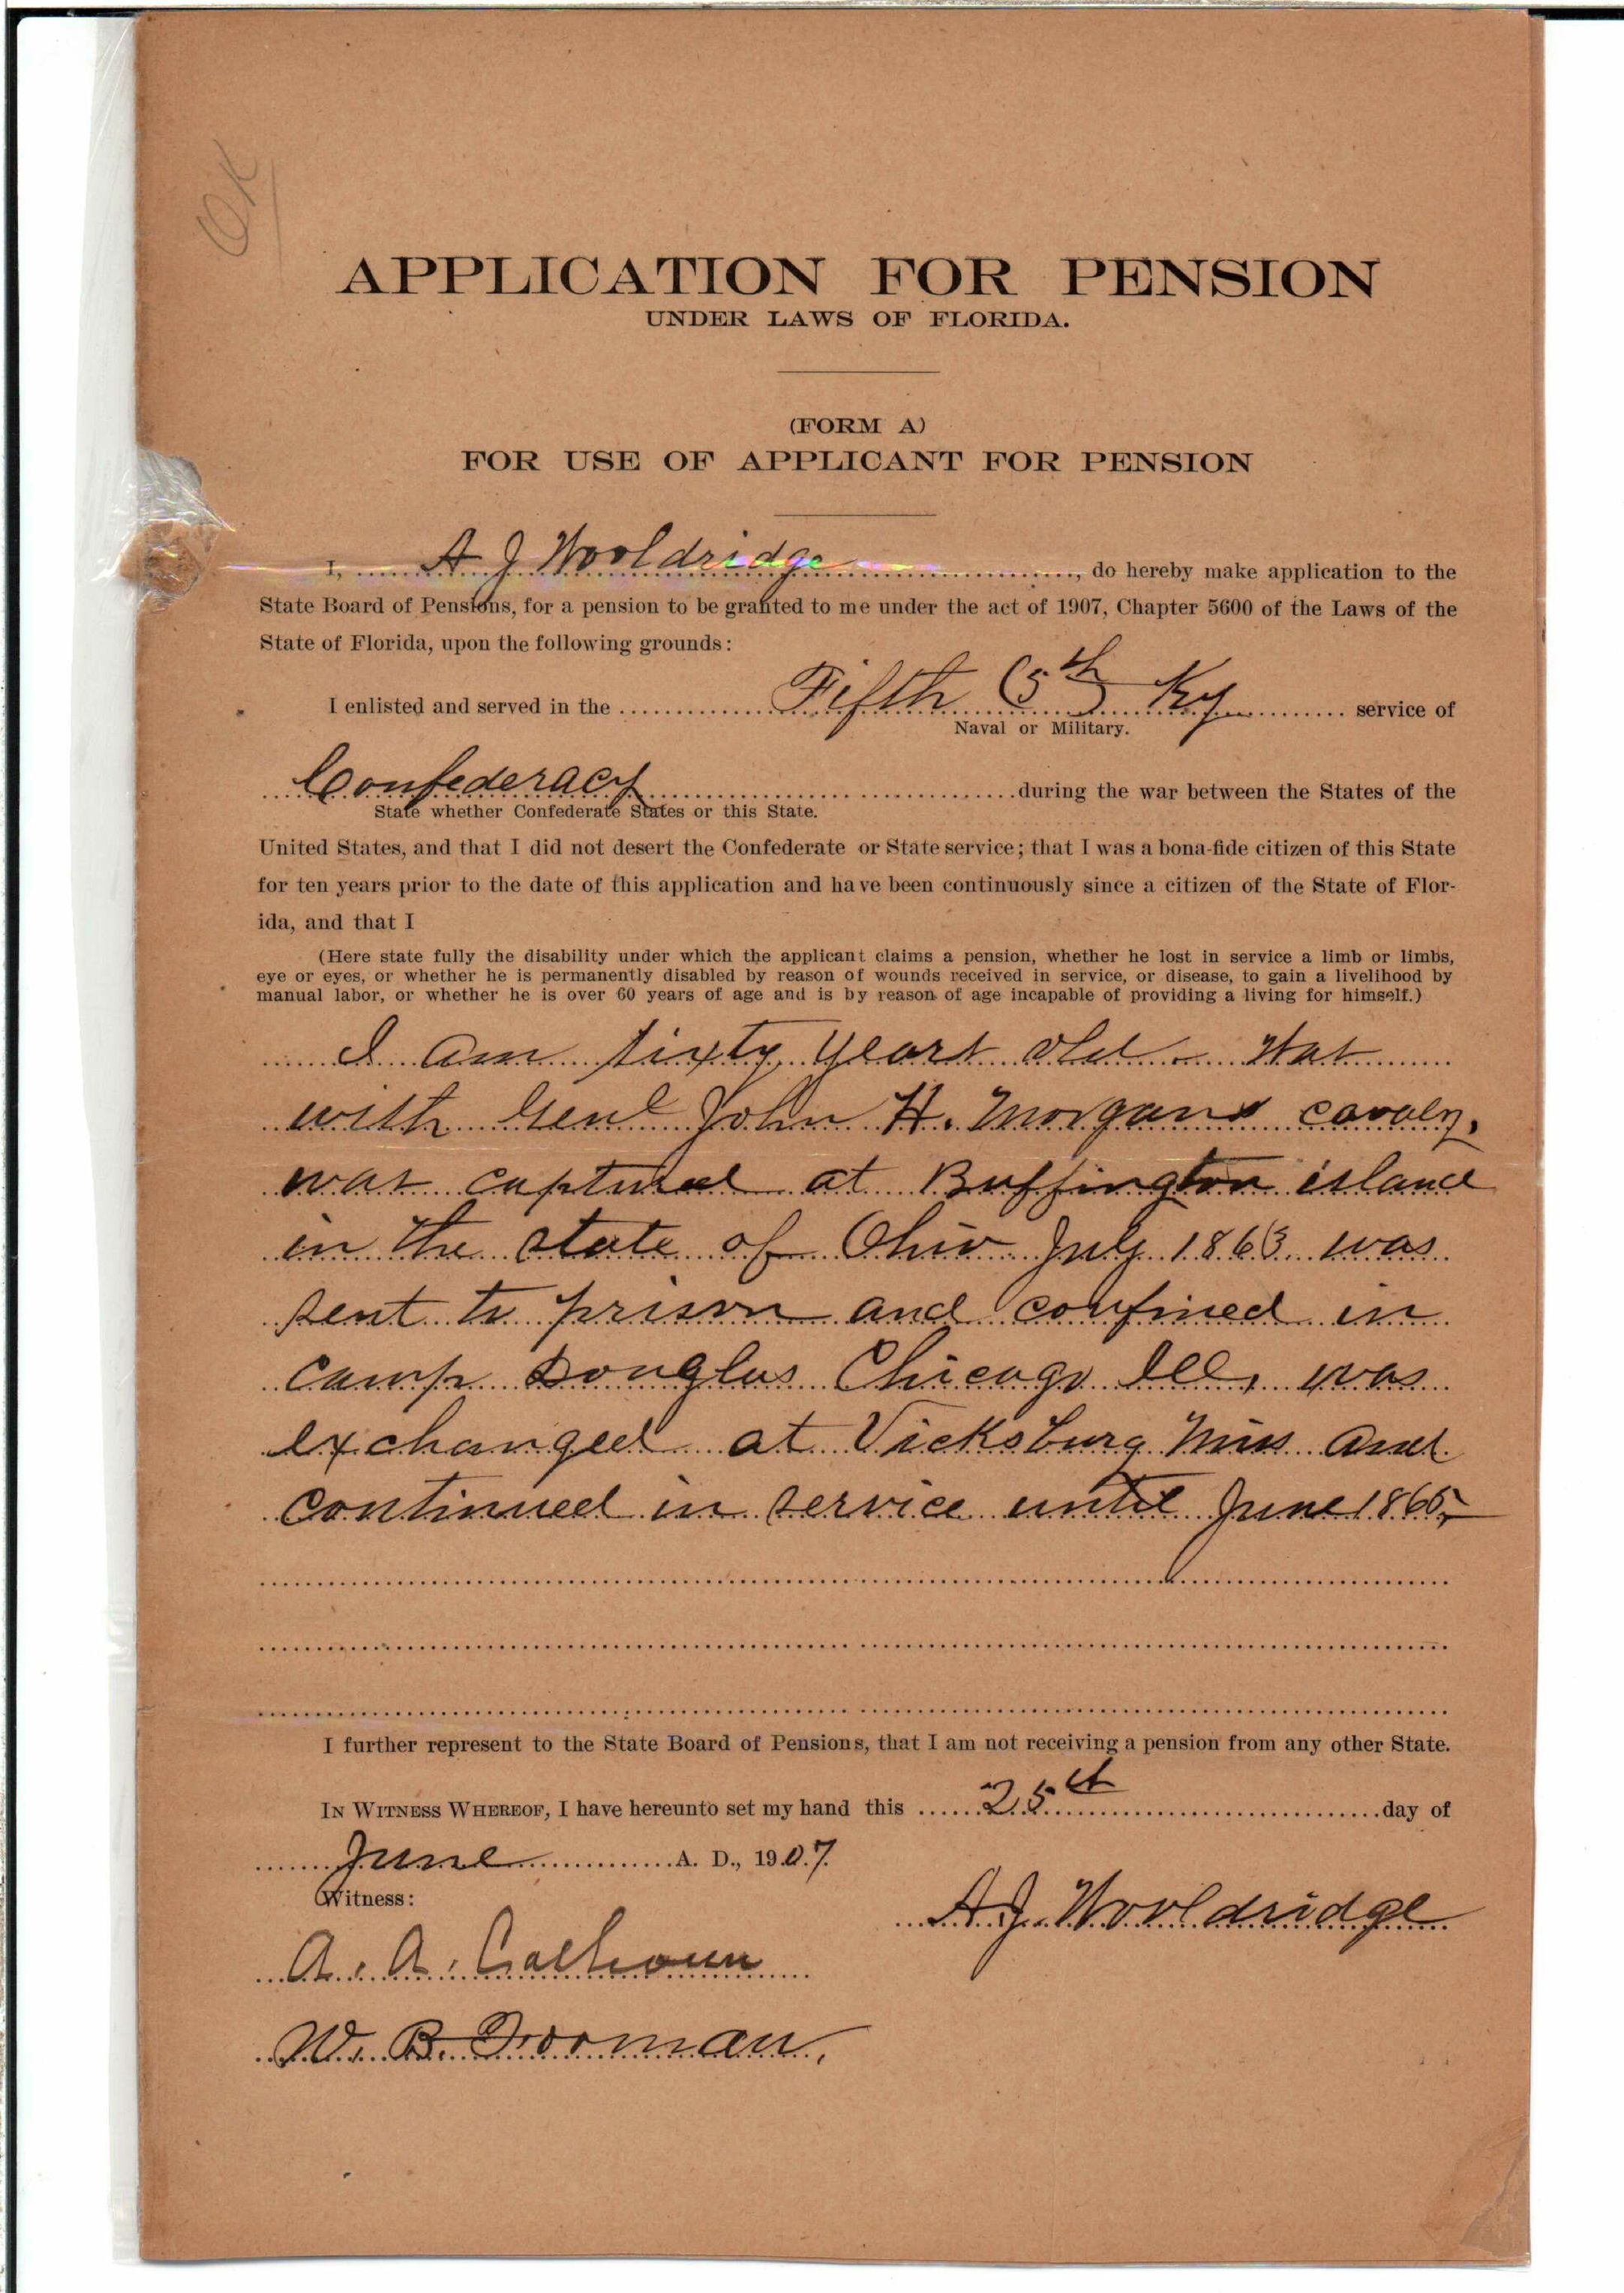 OK
APPLICATION FOR PENSION
UNDER LAWS OF FLORIDA.
(FORM A)
FOR USE OF APPLICANT FOR PENSION
I, A J Wooldridge, do hereby make application to the
State Board of Pensions, for a pension to be granted to me under the act of 1907, Chapter 5600 of the Laws of the
State of Florida, upon the following grounds:
I enlisted and served in the Fifth (5th) Ky service of
Naval or Military.
Confederacy during the war between the States of the
State whether Confederate States or this State.
United States, and that I did not desert the Confederate or State service; that I was a bona-fide citizen of this State
for ten years prior to the date of this application and have been continuously since a citizen of the State of Flor-
ida, and that I
(Here state fully the disability under which the applicant claims a pension, whether he lost in service a limb or limbs,
eye or eyes, or whether he is permanently disabled by reason of wounds received in service, or disease, to gain a livelihood by
manual labor, or whether he is over 60 years of age and is by reason of age incapable of providing a living for himself.)
I am sixty years old - Was
with Genl John H. Morgans cavalry.
was captured at Buffington island
in the state of Ohio July 1863 was
sent to prison and confined in
camp Douglas Chicago Ill, was
exchanged at Vicksburg Miss and
continued in service until June 1865,
I further represent to the State Board of Pensions, that I am not receiving a pension from any other State.
IN WITNESS WHEREOF, I have hereunto set my hand this 25th day of
June A. D., 1907.
Witness:
A. J. Wooldridge
A. A. Calhoun
W. B. Frooman.